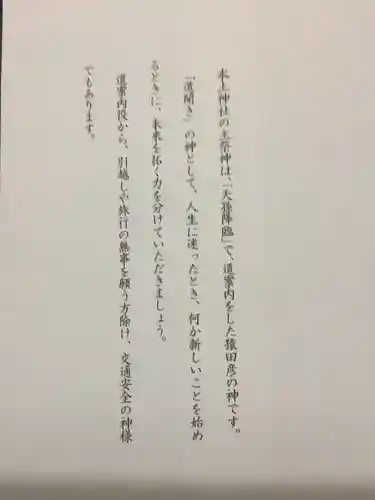 水上神社の主祭神は、「天孫降臨」で、道案内をした猿田彦の神です。
「道開き」の神として、人生に迷ったとき、何か新しいことを始め
るときに、未来を拓く力を分けていただきましょう。
道案内役から、引越しや旅行の無事を願う方除け、交通安全の神様
でもあります。